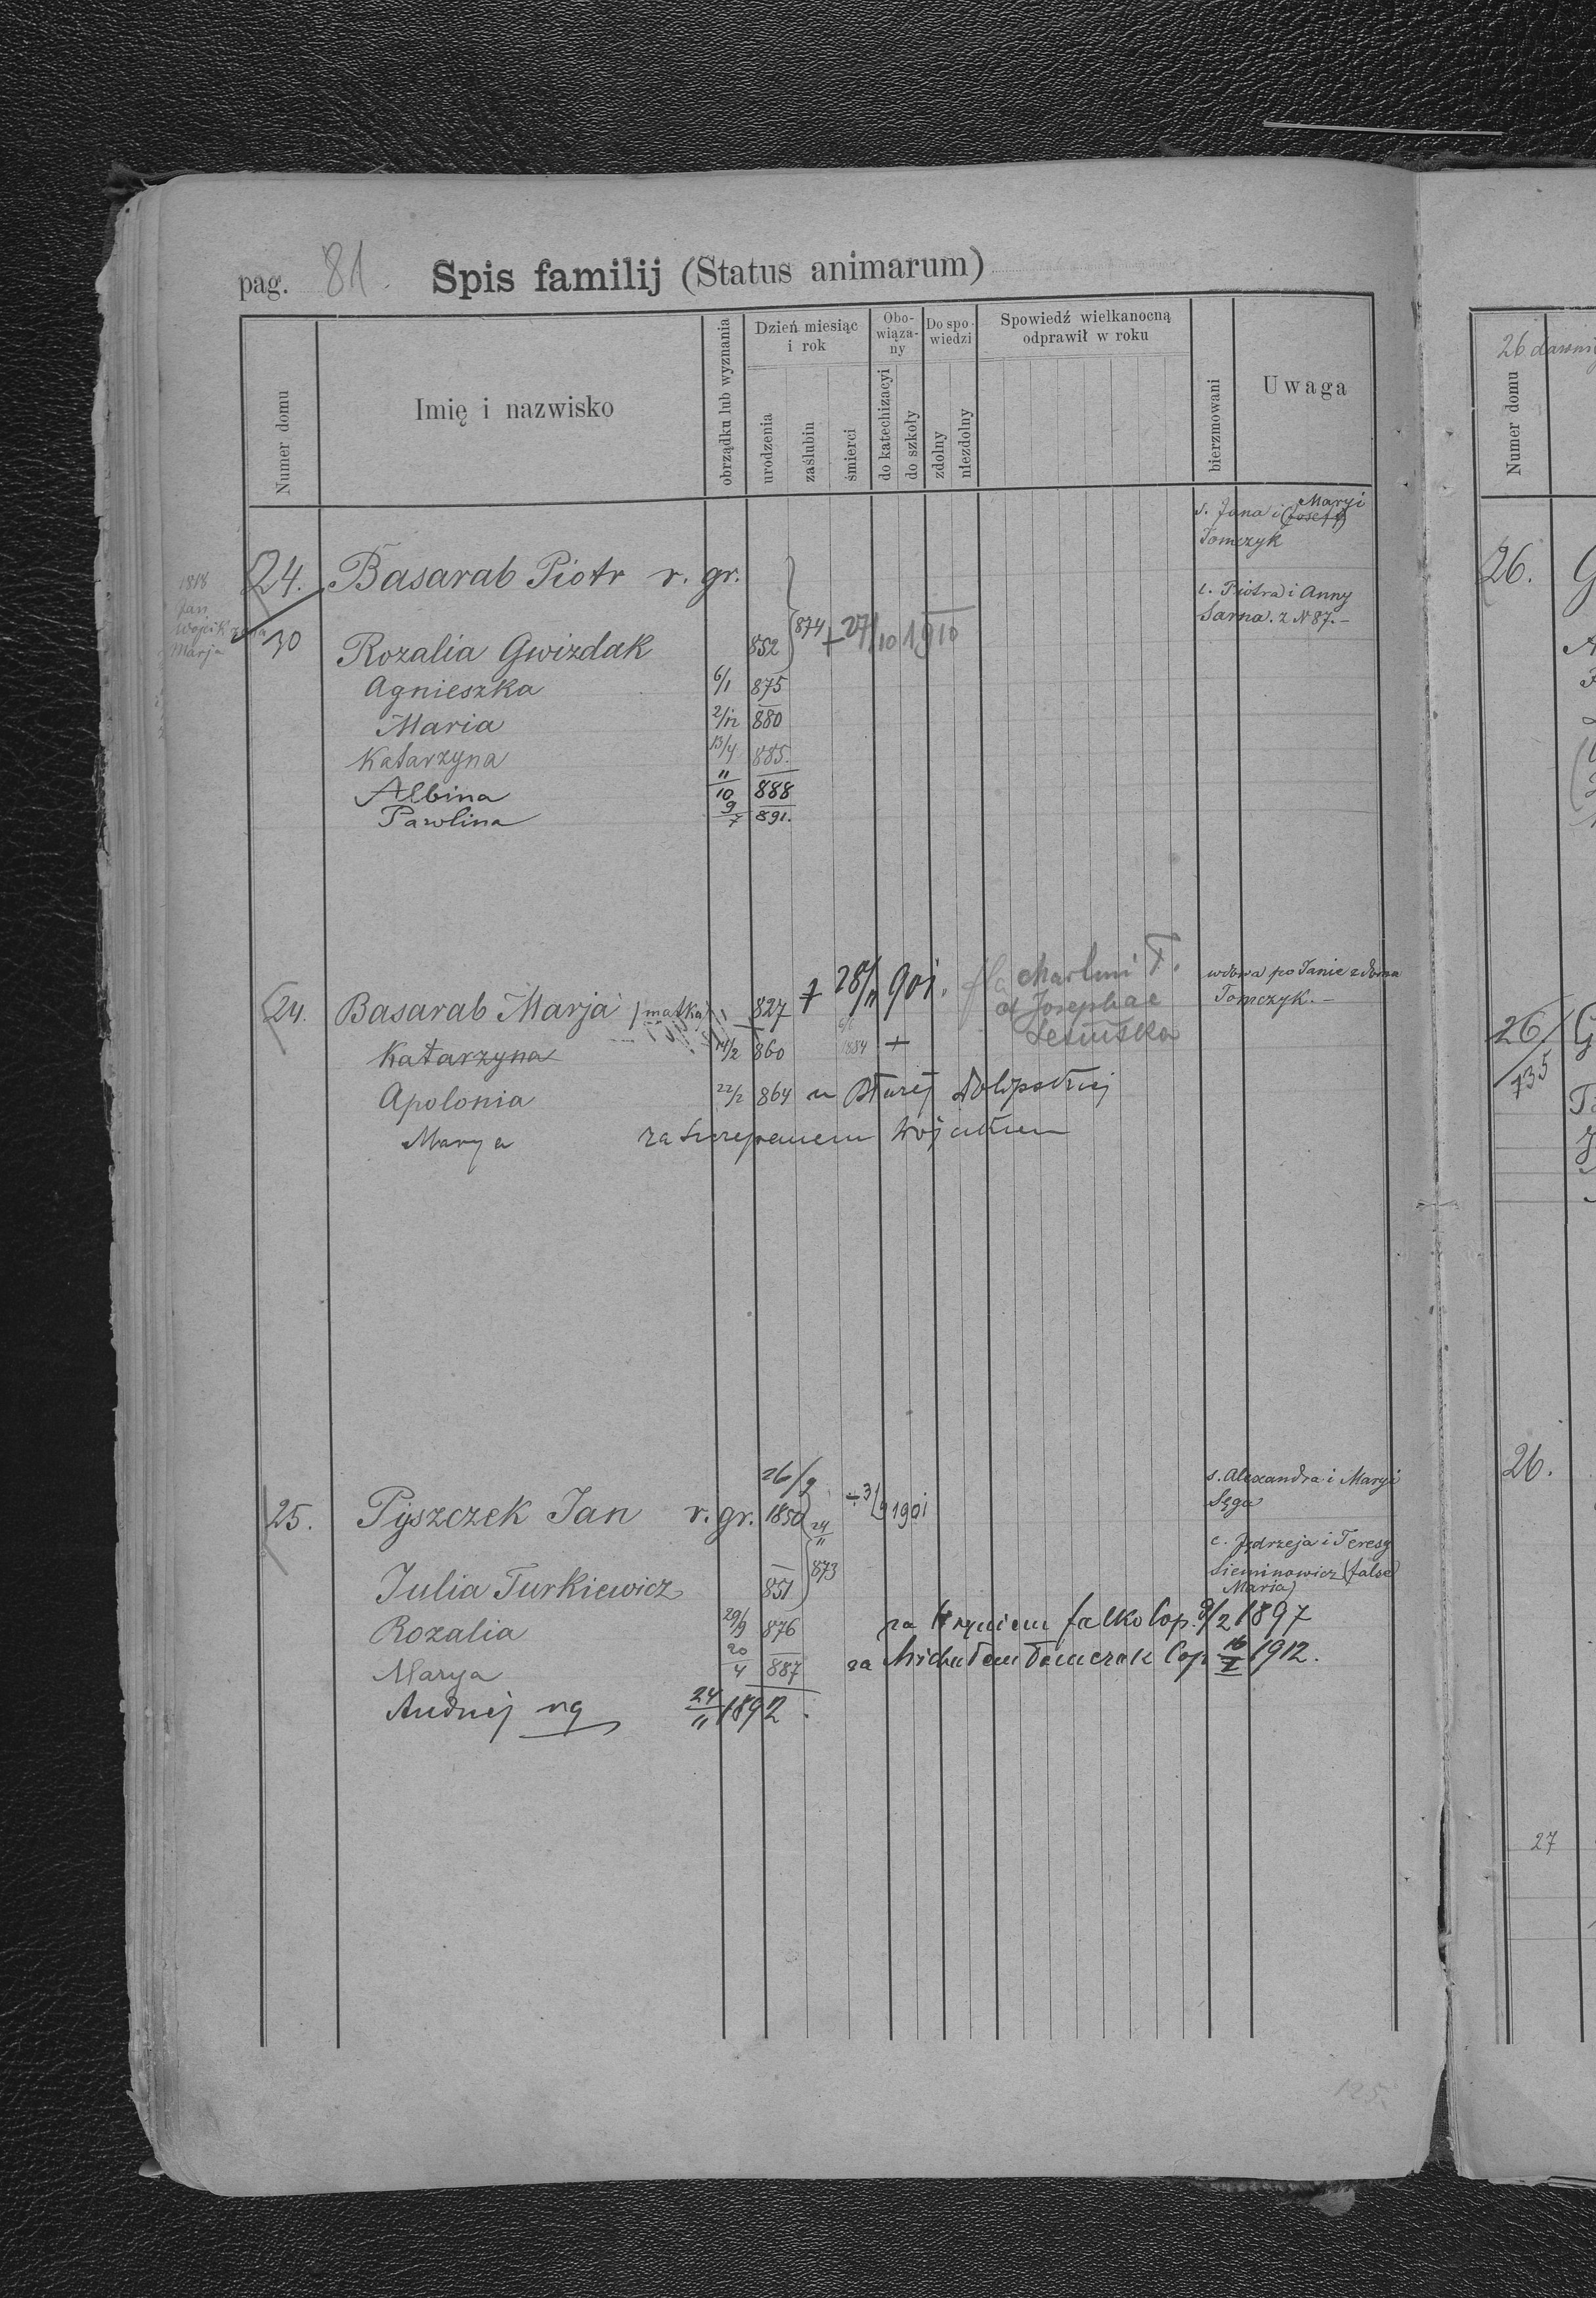 pag. 81. Spis familij (Status animarum)
Numer domu
Imię i nazwisko
obrządku lub wyznania
Dzień miesiąc i rok
urodzenia
zaślubin
śmierci
Obo-
wiąza-
ny
do katechizacyi
do szkoły
Do spo-
wiedzi
zdolny
niezdolny
Spowiedź wielkanocną
odprawił w roku
bierzmowani
Uwaga
s. Jana i (Josefy) Maryi
Tomczyk
24. Basarab Piotr r. gr.
1818
Jan
Wojcik żona
Marja
30
c. Piotra i Anny
Sarna. z N 87.-
Rozalia Gwizdak 852 874 + 27/10 1910
Agnieszka 6/1 875
Maria 2/12 880
Katarzyna 13/4 885.
Albina 11/10 888
Pawlina 9/7 891.
24. Basarab Marja /matka/ 827 + 28/11 901. fla Martini T.
et Josephae
wdowa po Janie z domu
Tomczyk.-
Katarzyna 14/2 860 1884 +
Apolonia 22/2 864 u
Marya za Szczepanem Wojcikiem
25. Pyszczek Jan r. gr. 26/9 1850 24/11 873 + 3/9 1901
s. Alexandra i Maryi
Sęga
c. Jędrzeja i Teresy
Sieminowicz (false
Maria)
Julia Turkiewicz 851
Rozalia 29/9 876 za Hryniem Falko Cop. 9/2 1897
Marya 20/4 887 za Michałem Tomczak Cop 16/I 1912.
Andrzej ng 24/11 1892.
125.
26 dawniej
Numer domu
26.
26/
135
26.
27